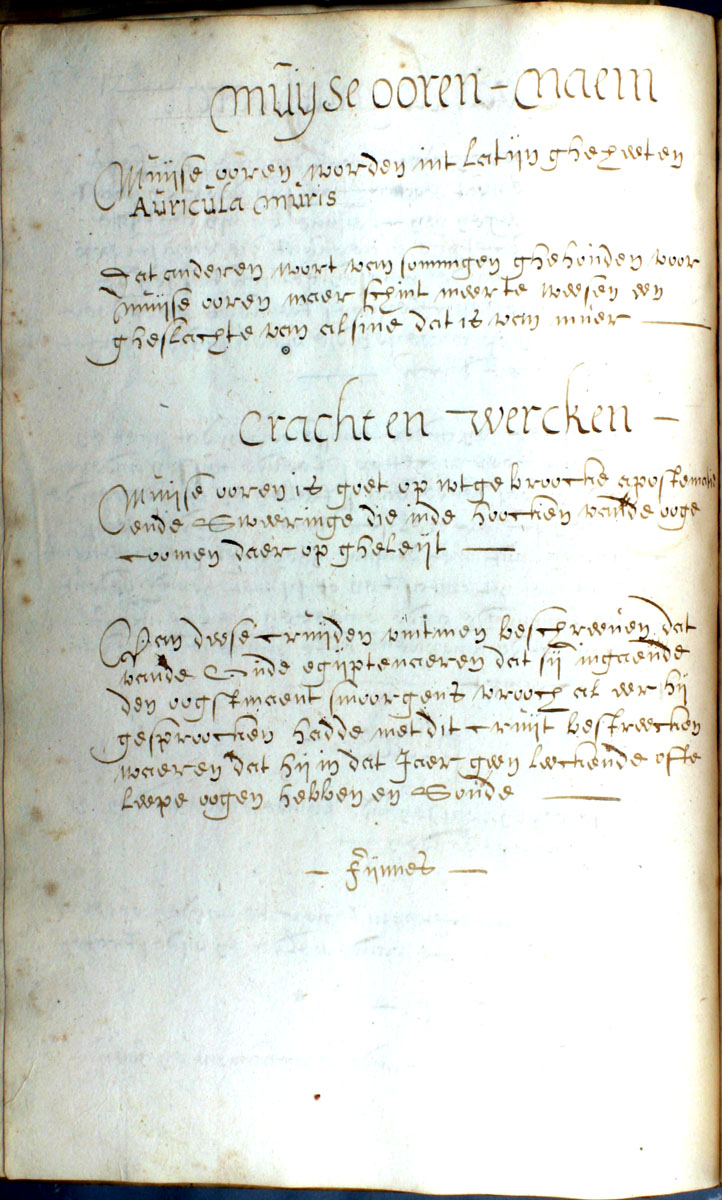 Muijse ooren – Naem
Muijse ooren worden int latijn gheheeten
Auricula Muris
Dat anderen wort van sommigen ghehouden voor
muijse ooren maer schint meer te weesen een
gheslachte van alsine dat is van muer
Cracht en Wercken –
Muijse ooren is goet op wtgebroocke apostematie
ende Sweeringe die inde hoocken vande ooge
coomen daer op gheleijt
Van deese cruijden vint men beschreeven dat
vande egijptenaeren dat sij ingaende
den oogstmaent smoorgens vrooch al eer hij
gesproocken hadde met dit cruijt bestreecken
waeren dat hij in dat Jaer geen leckende ofte
leepe oogen hebben en Soude
– Fijnnes –